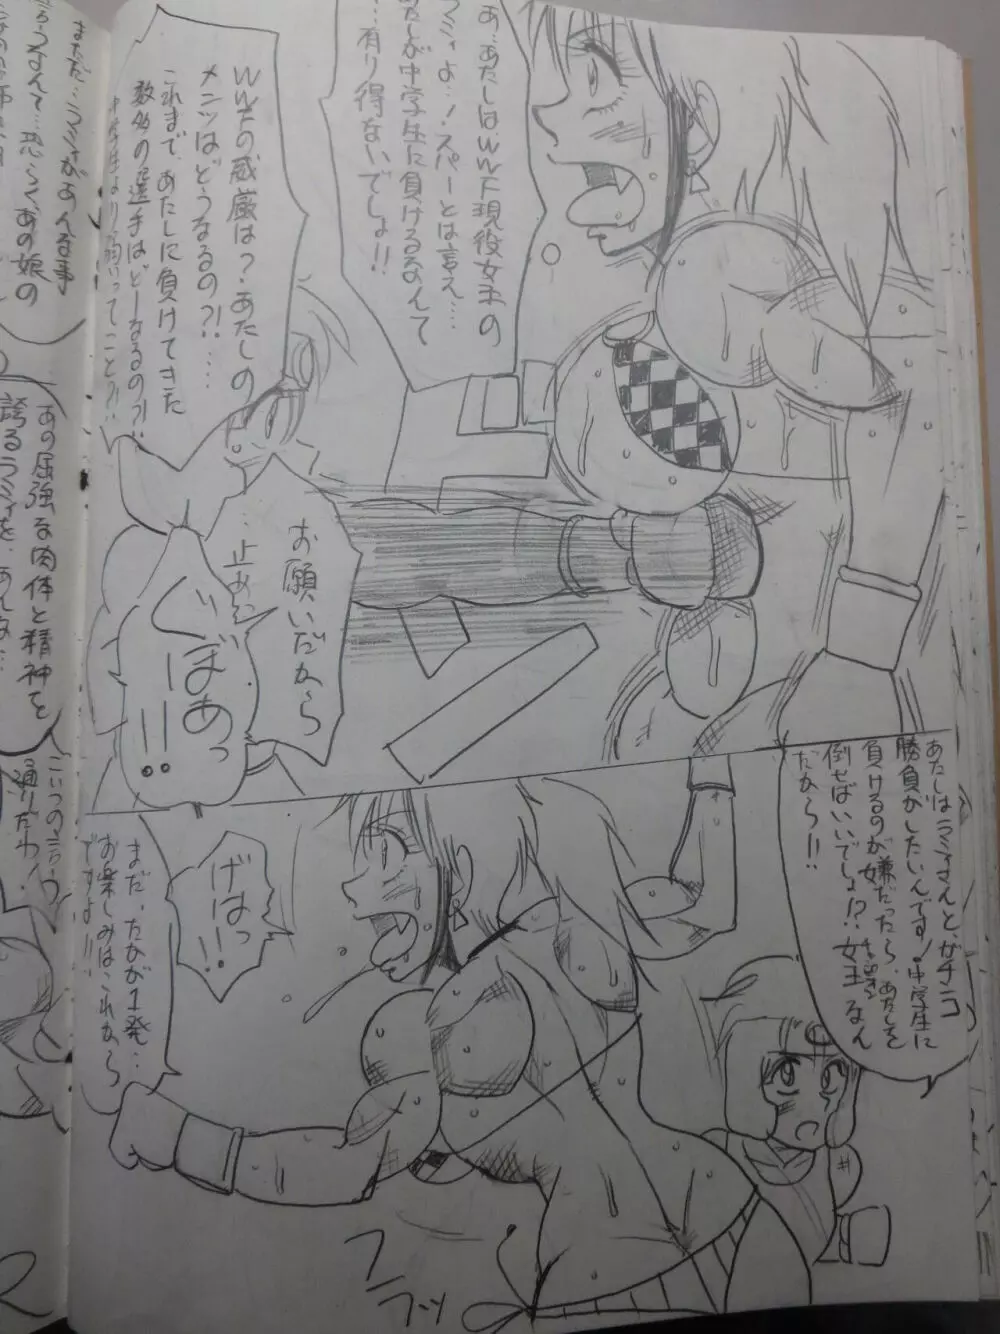 あ、あたしは、WWF現役女王の
ラミィよ…！スパーとは言え……
あたしが中学生に負けるなんて
…有り得ないでしょ!!
WWFの威厳は？あたしの
メンツはどうなるの?!…
これまで、あたしに負けてきた
数多の選手はどーなるの?!
中学生より弱いってこと?!
お願いだから
…止めて
ぐほあっ!!
あたしはラミィさんと、ガチンコ
勝負がしたいんです！中学生に
負けるのが嫌だったら、あたしを
倒せばいいでしょ!?女王なん
チャンピオン
だから!!
げはっ!!
まだ、たかが1発…
お楽しみはこれから
ですよ!!
フラッ
まだ…ラミィがあんな事
なんて…恐らくあの娘の
あの屈強な肉体と精神を
誇るラミィを、あんな…
こいつの言う
通りだわ！